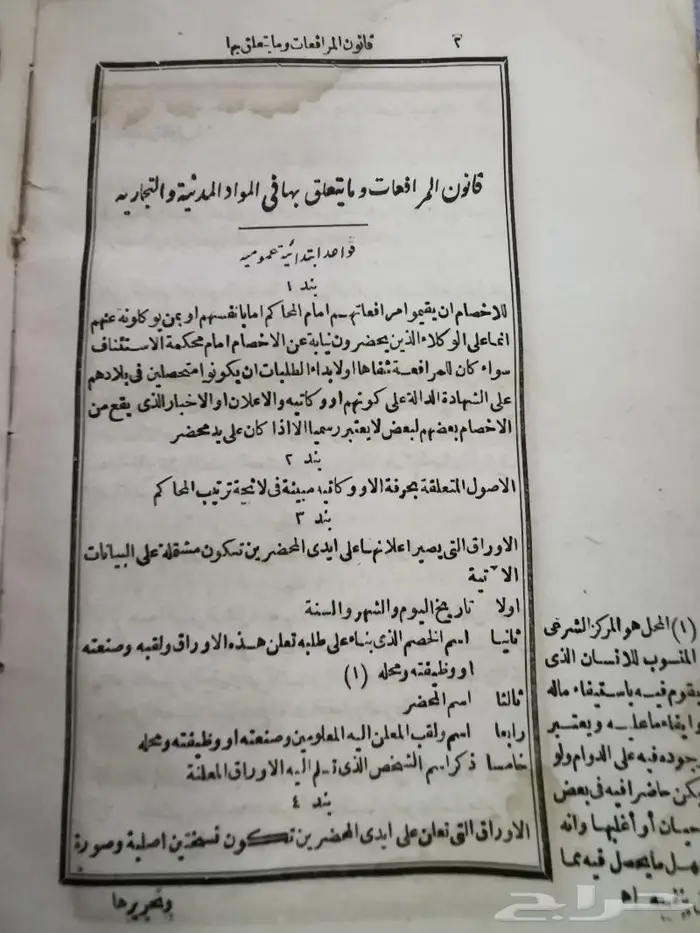 ٣
قانون المرافعات وما يتعلق بها
قانون المرافعات وما يتعلق بها فى المواد المدنية والتجاريه
قواعد ابتدائية عموميه
بند ١
للاخصام ان يقيموا مرافعاتهم امام المحاكم اما بانفسهم او بمن يوكلونه عنهم
انما على الوكلاء الذين يحضرون نيابة عن الاخصام امام محكمة الاستئناف
سواء كان للمرافعة شفاها او لابداء الطلبات ان يكونوا متحصلين فى بلادهم
على الشهادة الدالة على كونهم اووكاتيه والاعلان او الاخبار الذى يقع من
الاخصام بعضهم لبعض لا يعتبر رسميا الا اذا كان على يد محضر
بند ٢
الاصول المتعلقة بحرفة الاووكاتيه مبينة فى لائحة ترتيب المحاكم
بند ٣
الاوراق التى يصير اعلانها على ايدى المحضرين تكون مشتملة على البيانات
الآتية
اولا تاريخ اليوم والشهر والسنة
ثانيا اسم الخصم الذى بناء على طلبه تعلن هذه الاوراق ولقبه وصنعته
او وظيفته ومحله (١)
ثالثا اسم المحضر
رابعا اسم ولقب المعلن اليه المعلومين وصنعته او وظيفته ومحله
خامسا ذكر اسم الشخص الذى تسلم اليه الاوراق المعلنة
بند ٤
الاوراق التى تعلن على ايدى المحضرين تكون نسختين اصلية وصورة
وتحريرها
(١) المحل هو المركز الشرعى
المنسوب للانسان الذى
يقوم فيه باستيفاء ماله
وايفاء ما عليه ويعتبر
وجوده فيه على الدوام ولو
يكن حاضرا فيه فى بعض
احيان أو أغلبها وانه
ما يحصل فيه مما
اه
حراج